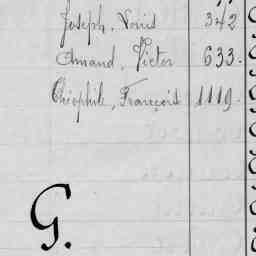 Joseph, Louis 342
Amand, Victor 633.
Théophile, François 1119.
G.